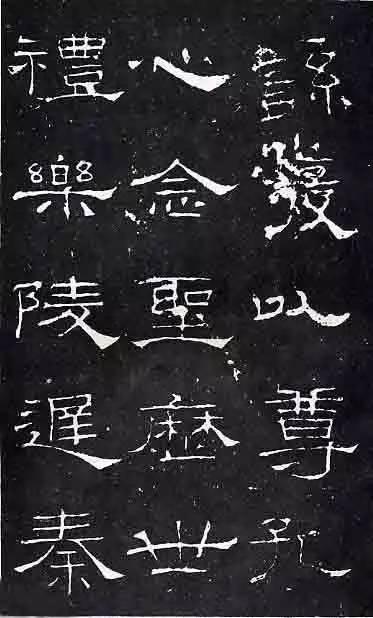 繇發以尊孔
心念聖歷世
禮樂陵遲秦